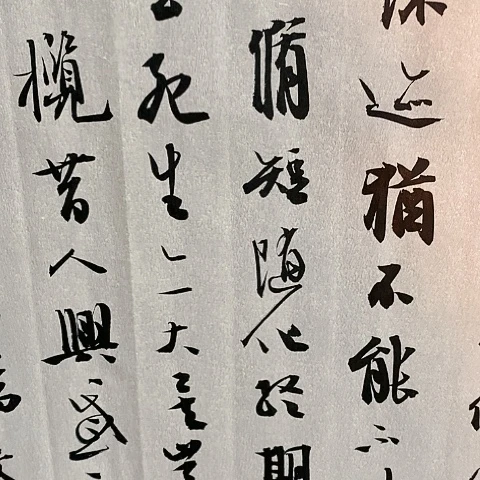 陳迹猶不能不
脩短隨化終期
云死生亦大矣豈
攬昔人興感